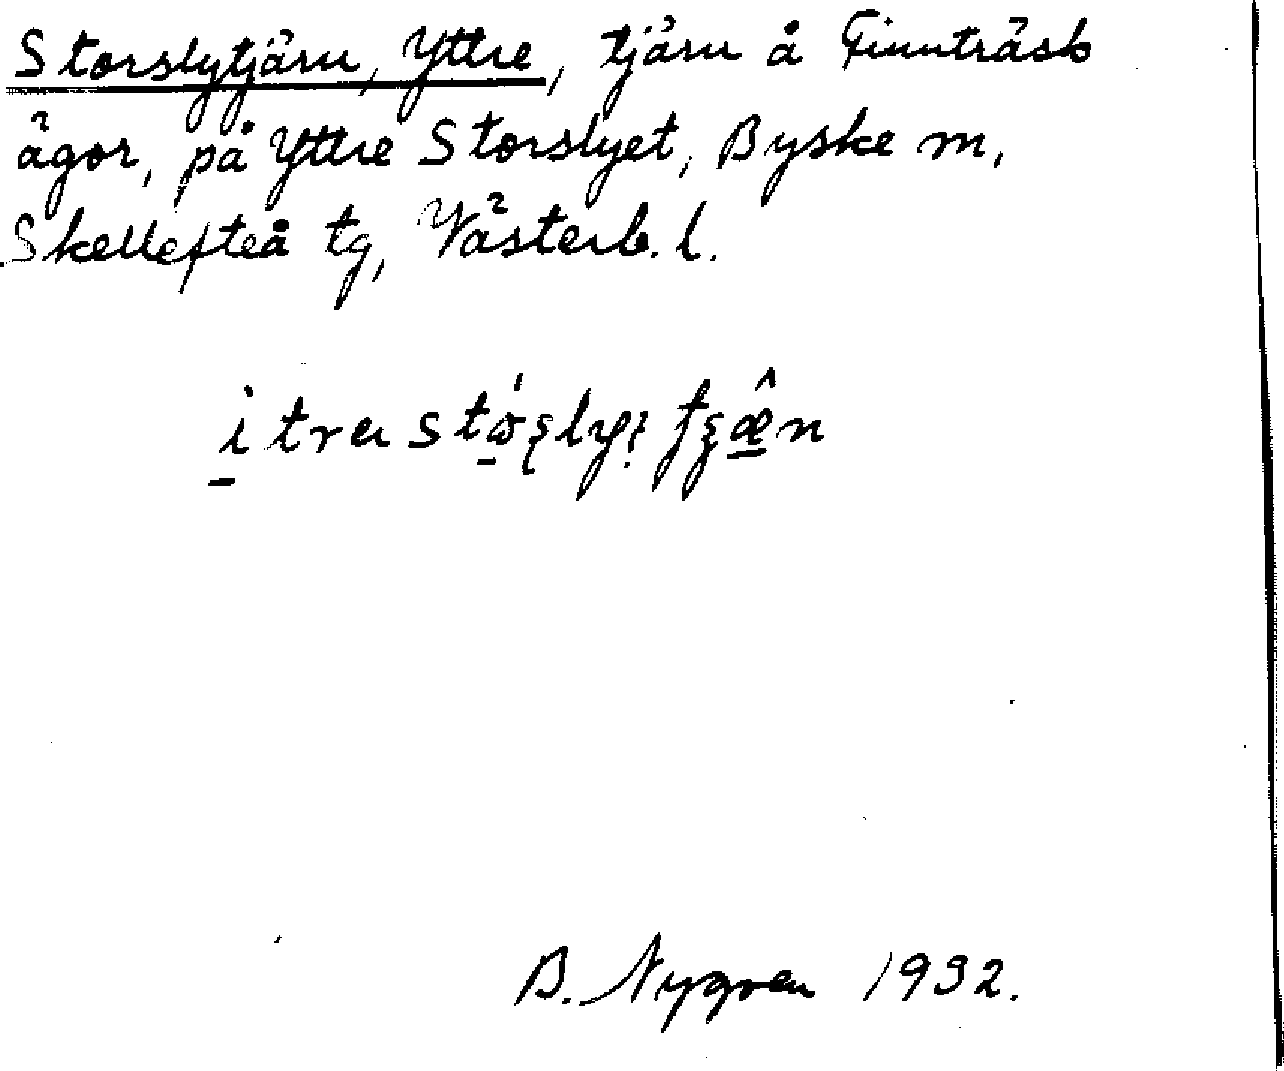 Storslytjärn, Yttre, tjärn å Finnträsk
ägor, på Yttre Storslyet, Byske m,
Skellefteå tg, Västerb. l.
B. Nygren 1932.